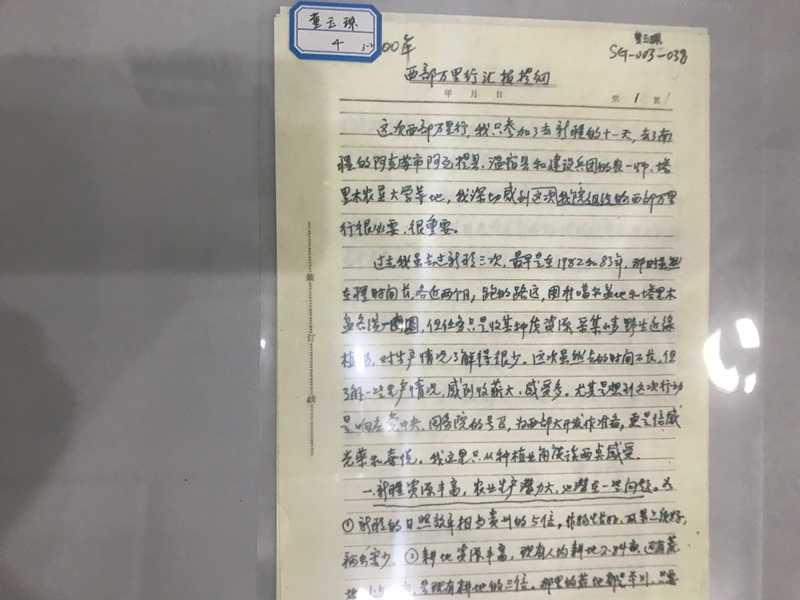 董玉琛
4 3-2
00年
董玉琛
SG-003-038
西部万里行汇报提纲
年 月 日 第 1 页
这次西部万里行,我只参加了去新疆的十一天,去了南
疆的阿克苏市阿瓦提县、温宿县和建设兵团的农一师、塔
里木农垦大学等地,我深切感到这次我院组织的西部万里
行很必要、很重要。
过去我虽去过新疆三次,最早是在1982和83年,那时虽然
在疆时间长,各近两个月,跑的路远,围准噶尔盆地和塔里木
盆各绕一圈,但任务只是收集种质资源,采集小麦野生近缘
植物,对生产情况了解得很少。这次虽然去的时间不长,但
了解一些生产情况,感到收获大,感受多。尤其是想到这次行动
是响应党中央、国务院的号召,为西部大开发作准备,更是倍感
光荣和喜悦。我这里只从种植业角度谈两点感受。
一.新疆资源丰富,农业生产潜力大,也潜在一些问题。
①新疆的日照数率相当贵州的5倍,
病虫害少。②耕地资源丰富,现有人均耕地2.84亩,还有荒
是现有耕地的三倍,那里的荒地都是平川,只要
装
订
线